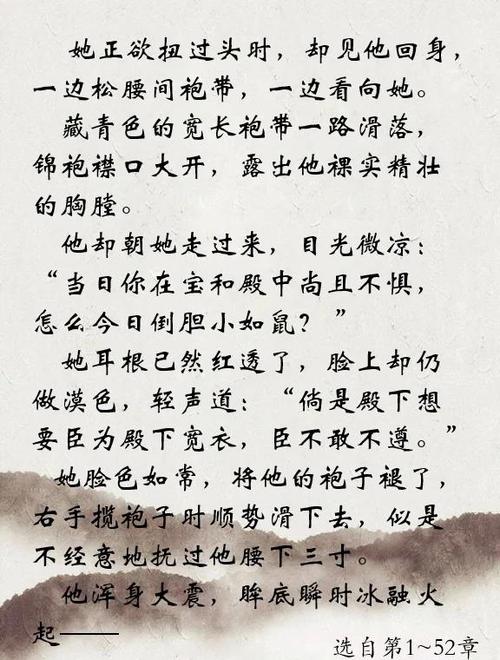 她正欲扭过头时，却见他回身，
一边松腰间袍带，一边看向她。
藏青色的宽长袍带一路滑落，
锦袍襟口大开，露出他裸实精壮
的胸膛。
他却朝她走过来，目光微凉：
“当日你在宝和殿中尚且不惧，
怎么今日倒胆小如鼠？”
她耳根已然红透了，脸上却仍
做漠色，轻声道：“倘是殿下想
要臣为殿下宽衣，臣不敢不遵。”
她脸色如常，将他的袍子褪了，
右手揽袍子时顺势滑下去，似是
不经意地抚过他腰下三寸。
他浑身大震，眸底瞬时冰融火
起——
选自第1~52章